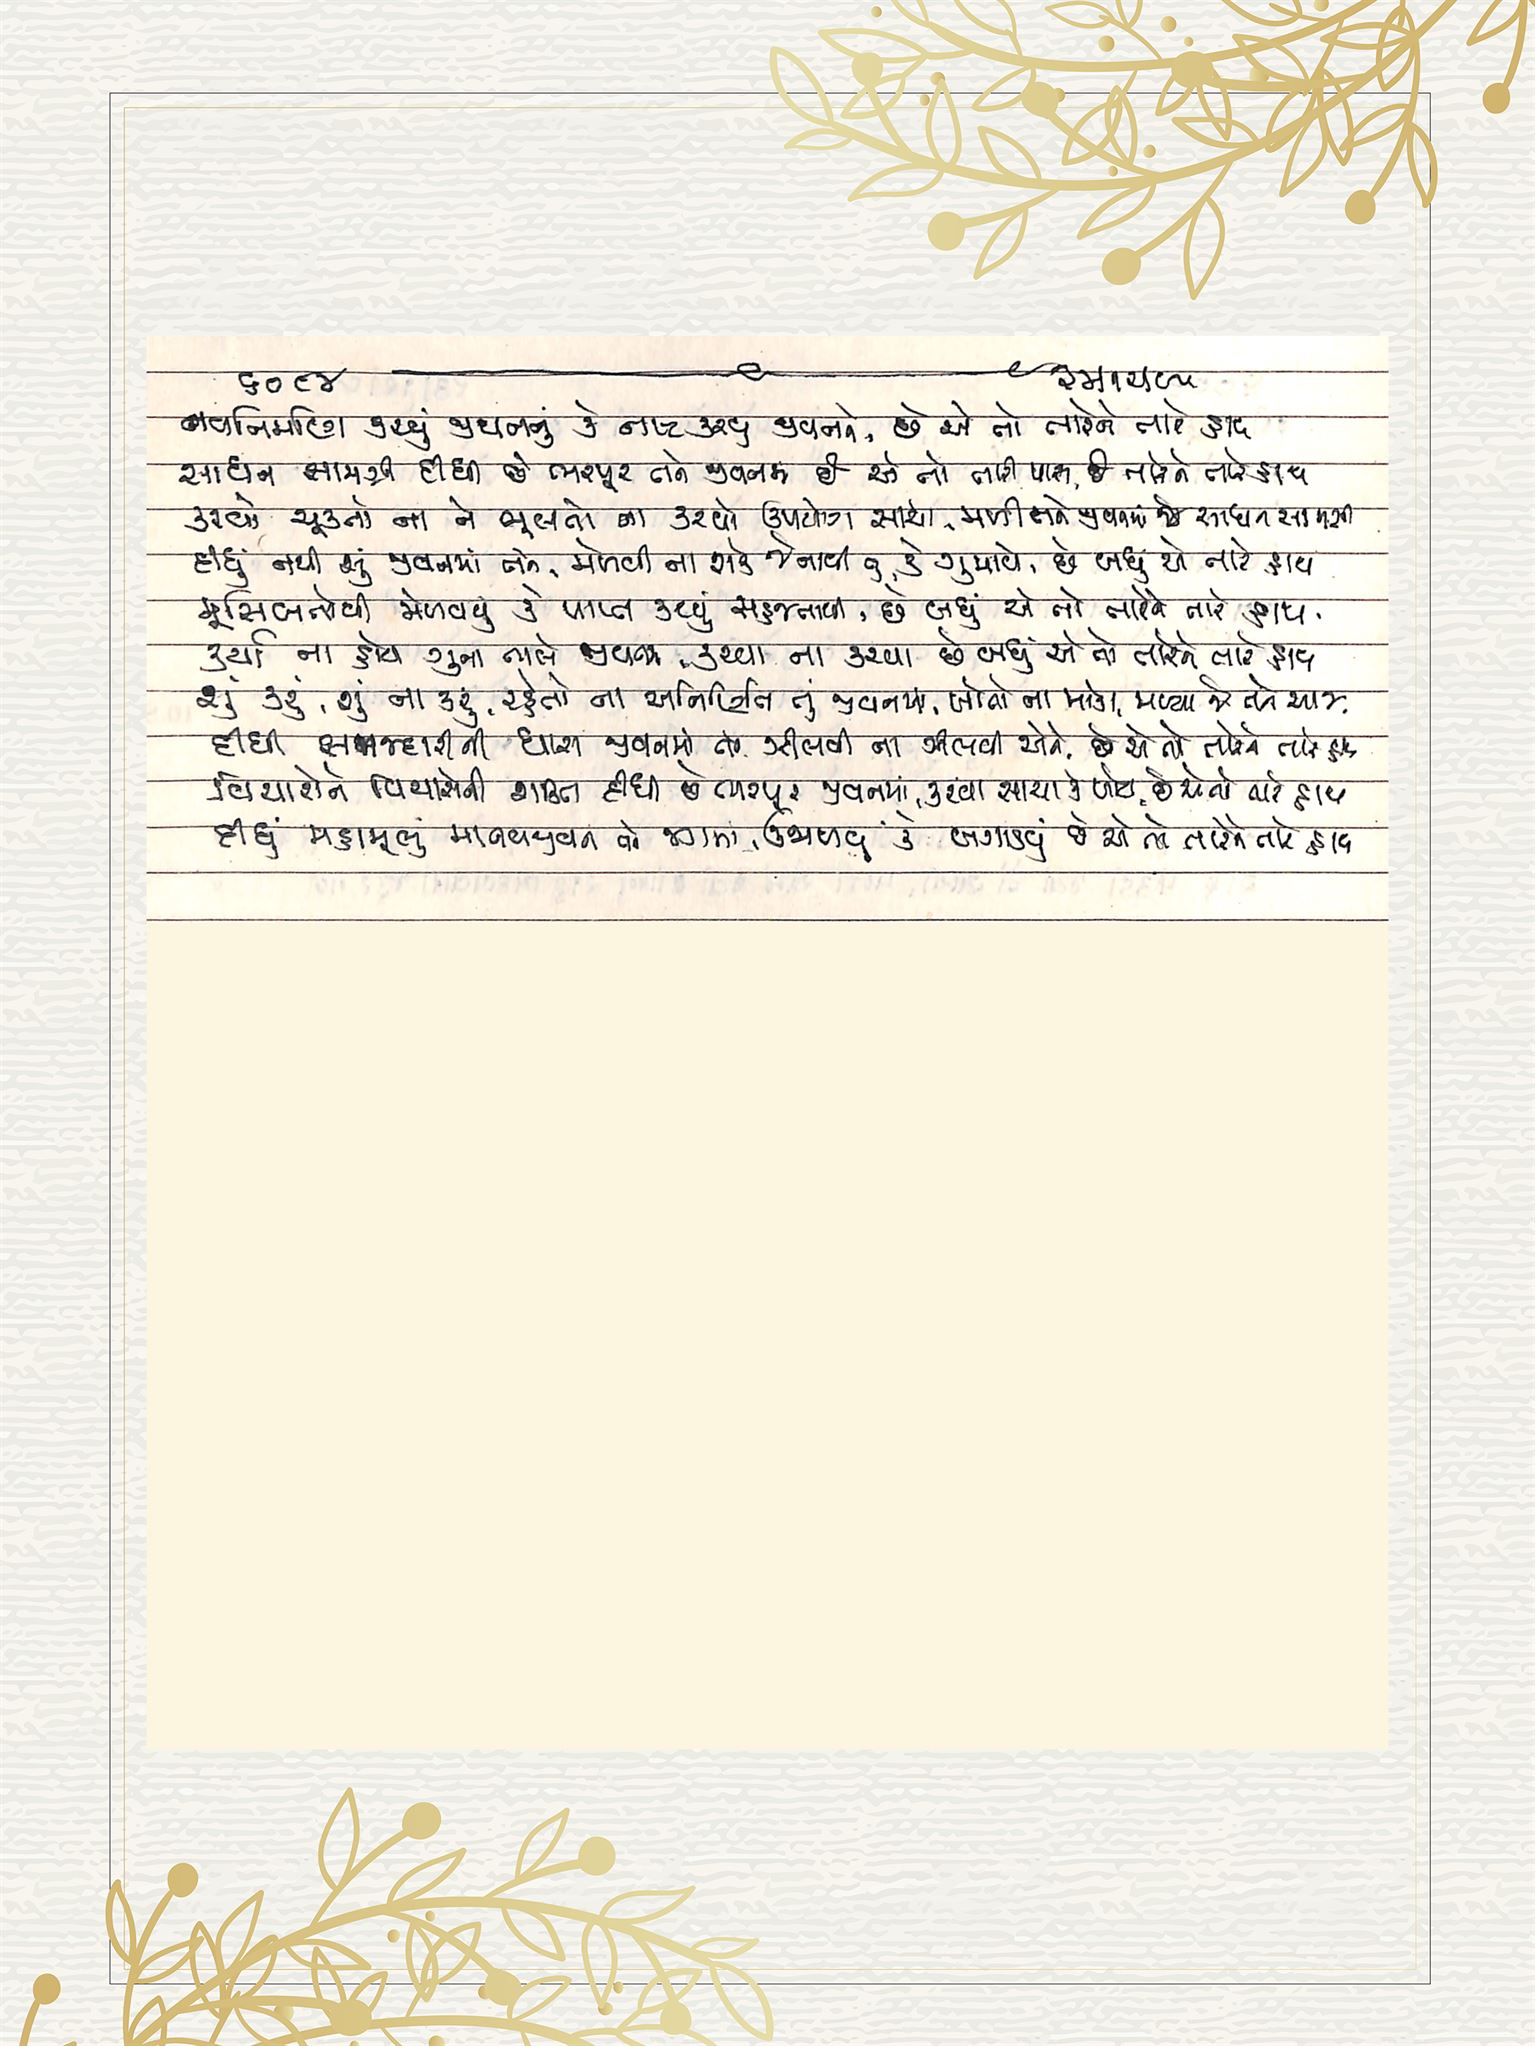 ૬૦૯૪
નવનિર્માણ કરવું જીવનનું કે નષ્ટ કરવું જીવનને, છે એ તો તારેને તારે હાથ
સાધન સામગ્રી દીધી છે ભરપૂર તને જીવનમાં છે એ તો તારી પાસ, છે તારેને તારે હાથ
કરવો ચૂકતો ના ને ભૂલતો ના કરવો ઉપયોગ સાચો, મળી તને જીવનમાં જે સાધન સામગ્રી
દીધું નથી શું જીવનમાં તને, મેળવી ના શકે જેનાથી તું, કે ગુમાવે, છે બધું એ તારે હાથ
મુસીબતોથી મેળવવું કે પ્રાપ્ત કરવું સહજતાથી, છે બધું એ તો તારેને તારે હાથ.
કર્યા ના હોય ગુના ભલે જીવનમાં, કરવા ના કરવા છે બધું એ તો તારેને તારે હાથ
શું કરું, શું ના કરું, રહેતો ના અનિશ્ચિત તું જીવનમાં, ખોતો ના મોકા, મળ્યા જે તને આજ
દીધી સમજદારીની ધારા જીવનમાં તને ઝીલવી ના ઝીલવી એને, છે એ તો તારેને તારે હાથ
વિચારોને વિચારોની શક્તિ દીધી છે ભરપૂર જીવનમાં, કરવા સાચા કે ખોટા, છે એ તો તારે હાથ
દીધું મહામૂલું માનવજીવન તને જગમાં, ઉજાળવું કે બગાડવું છે એ તો તારેને તારે હાથ